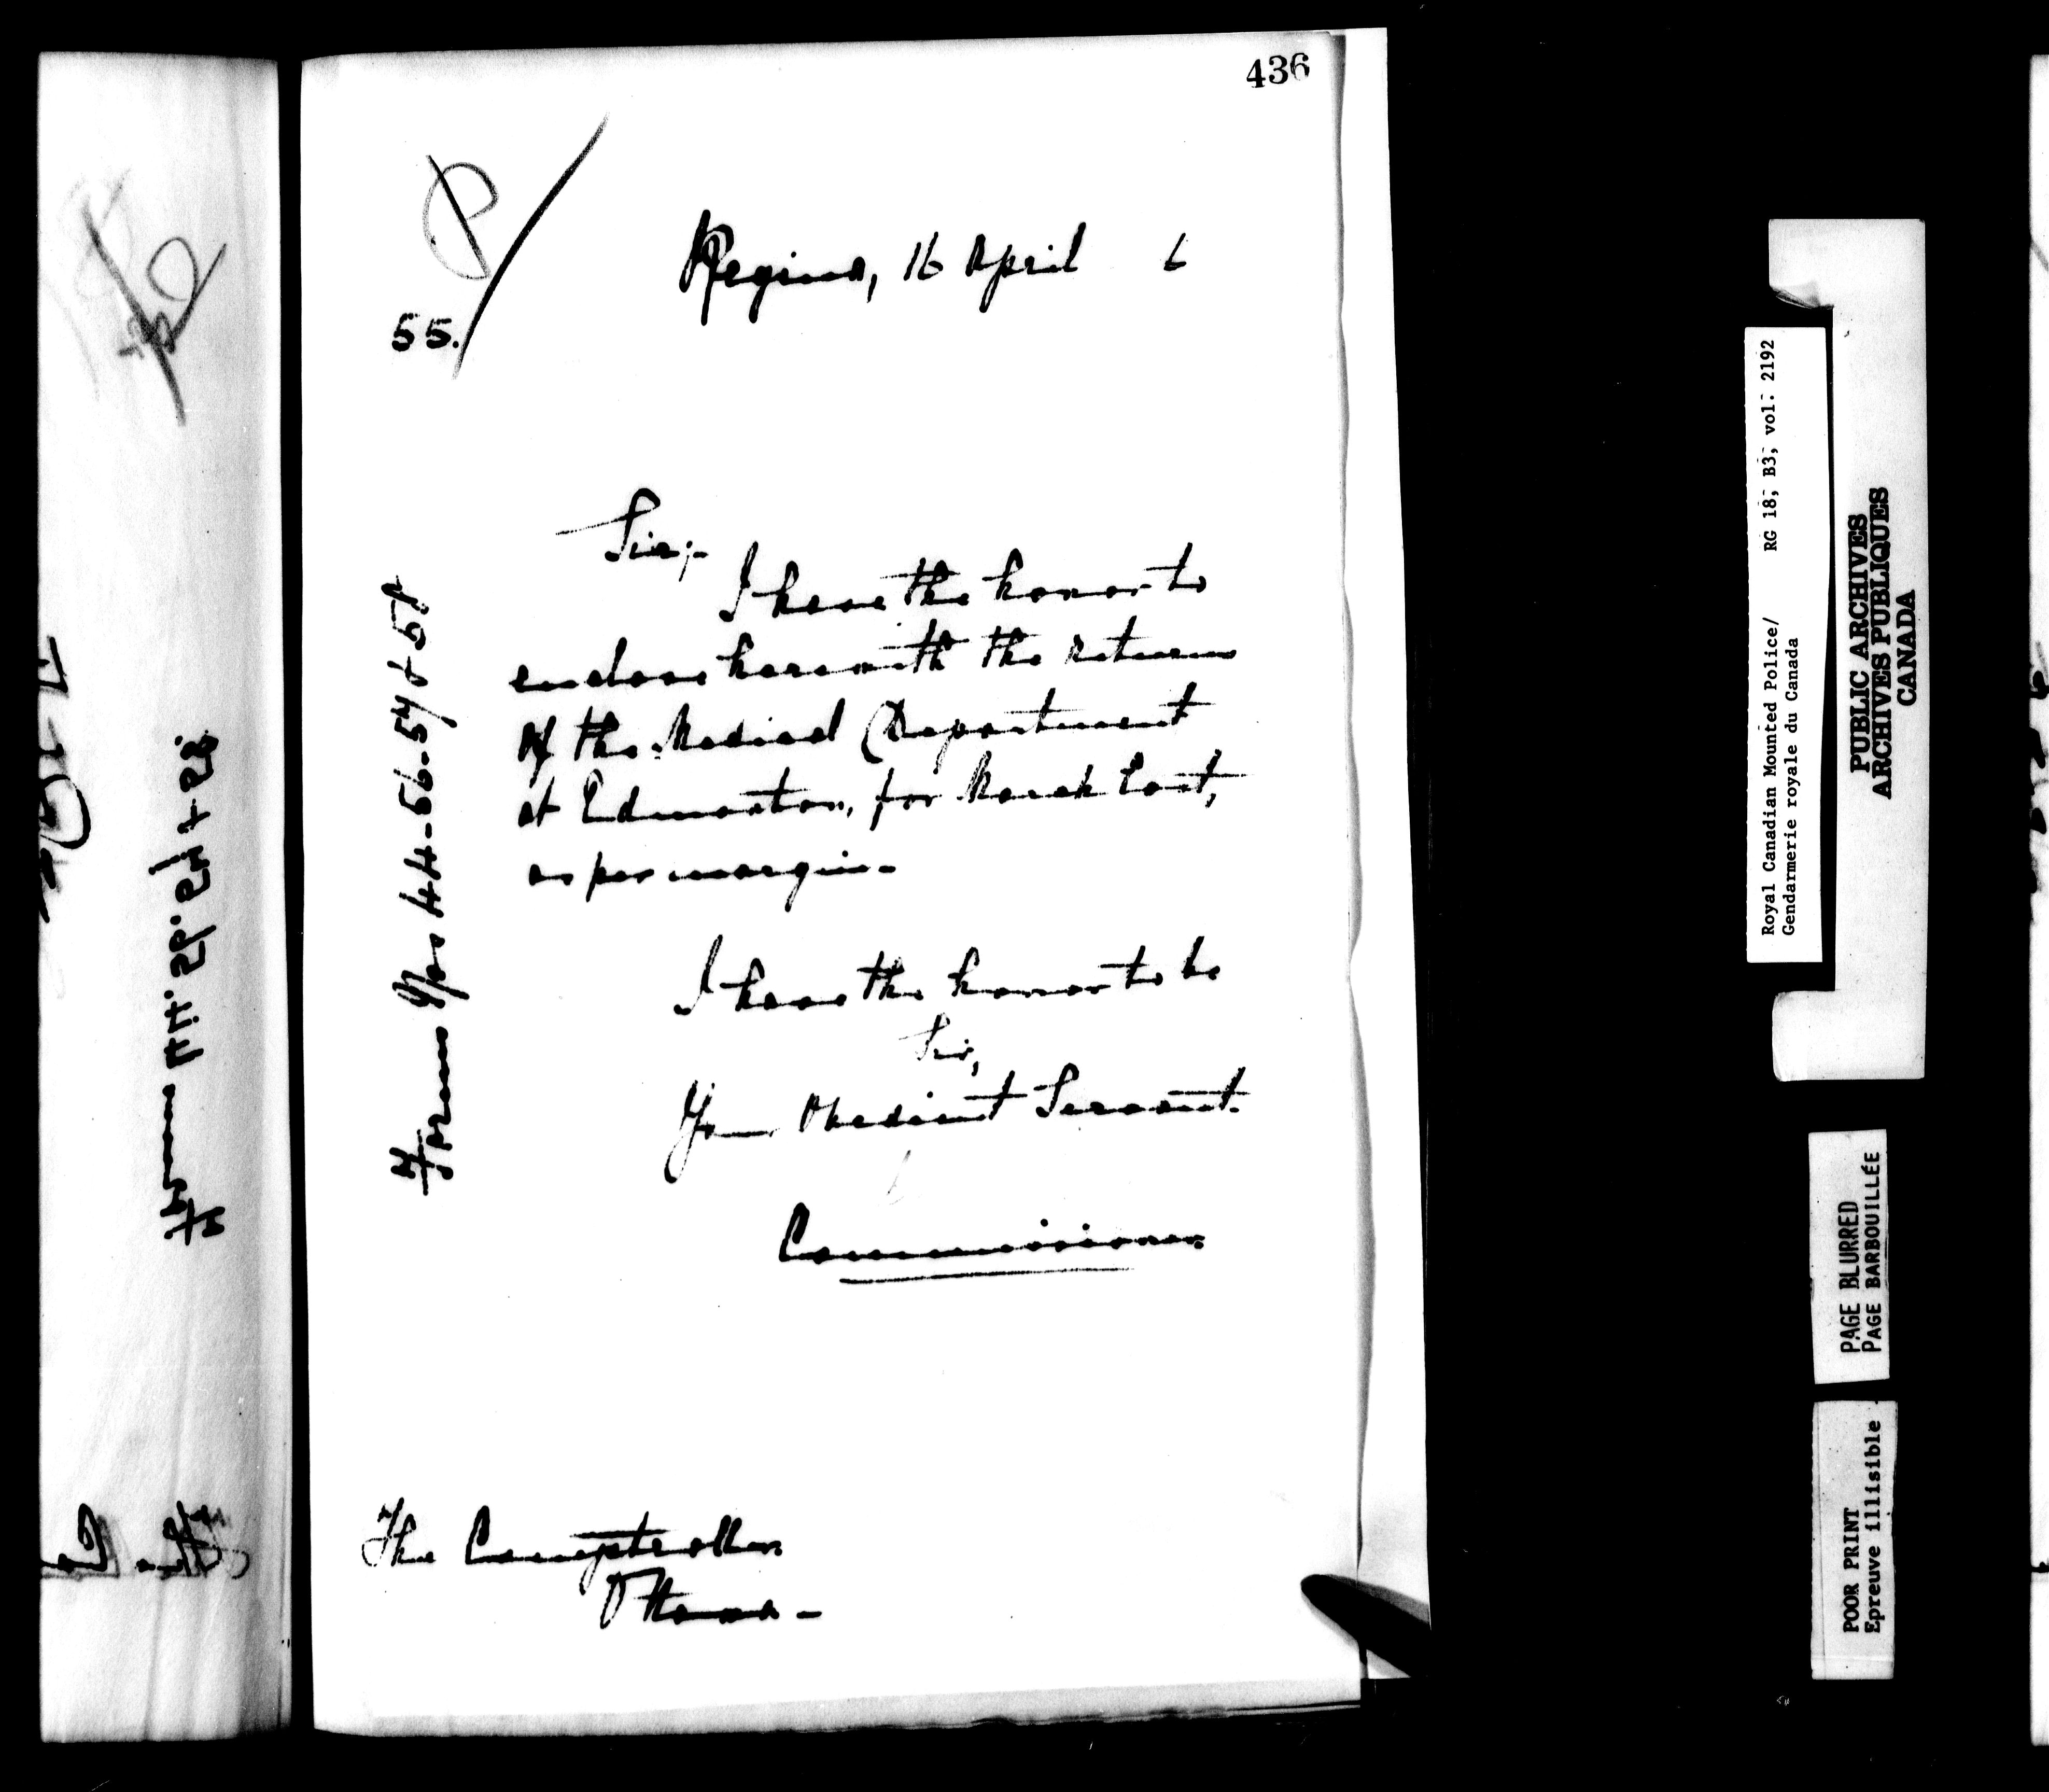 436
55.
Regina, 16 April 6
Sir;-
I have the honor to
enclose herewith the returns
of the Medical Department
at Edmonton, for March last,
as per margin-
Forms Nos 44-56-57 & 58
I have the honor to be
Sir,
Your Obedient Servant.
Commissioner.
The Comptroller.
Ottawa -
Royal Canadian Mounted Police/ RG 18, B3, vol: 2192
Gendarmerie royale du Canada
PUBLIC ARCHIVES
ARCHIVES PUBLIQUES
CANADA
PAGE BLURRED
PAGE BARBOUILLÉE
POOR PRINT
Epreuve illisible